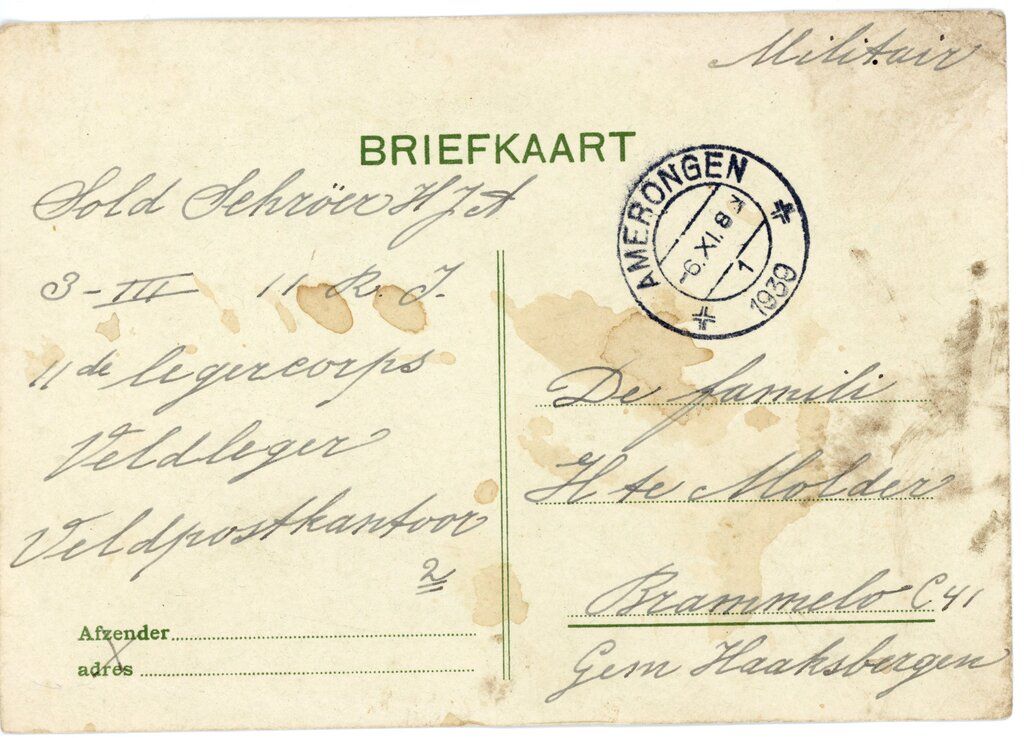 Militair
BRIEFKAART
AMERONGEN
-6.XI.8 K
1
1939
Sold Schröer H J A
3-III 11 R. J.
11de legercorps
Veldleger
Veldpostkantoor
2
Afzender
adres
De famili
H te Molder
Brammelo C 41
Gem Haaksbergen